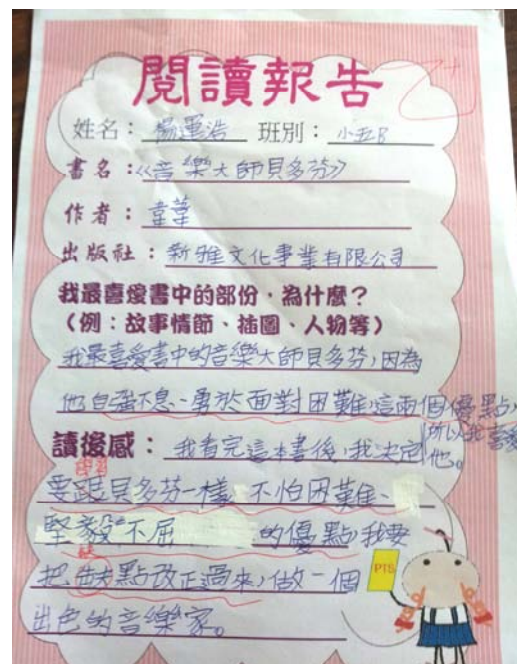 閱讀報告
乙+
姓名：楊運浩 班別：小五B
書名：《音樂大師貝多芬》
作者：韋葦
出版社：新雅文化事業有限公司
我最喜愛書中的部份，為什麼？
（例：故事情節、插圖、人物等）
我最喜愛書中的音樂大師貝多芬，因為
他自強不息、勇於面對困難這兩個優點，
所以我喜愛
他。
讀後感：我看完這本書後，我決定
學習
要跟貝多芬一樣 不怕困難、
堅毅不屈 的優點，我要
缺
把缺點改正過來，做一個
PTS
出色的音樂家。